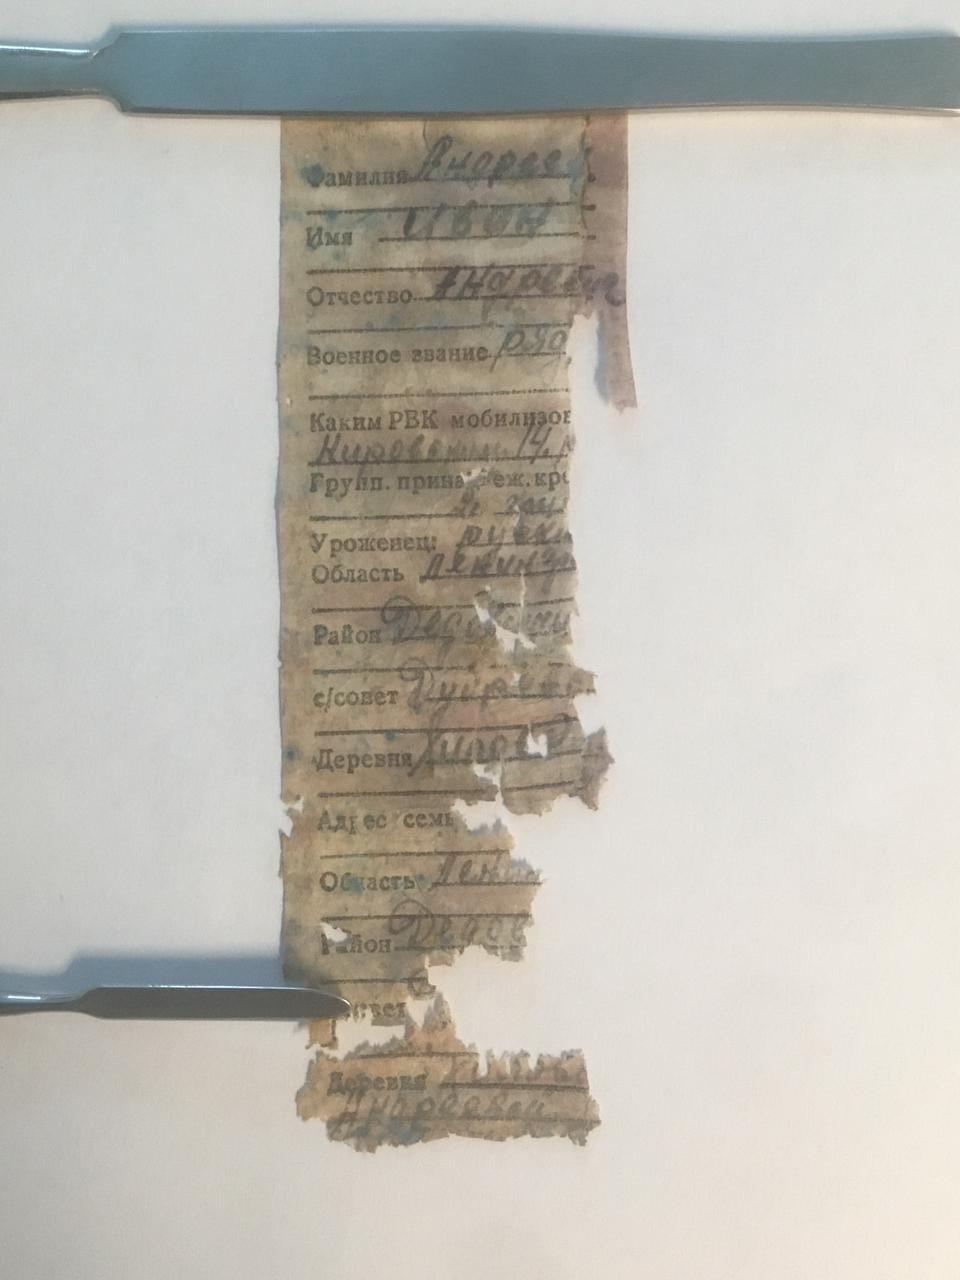 Фамилия Андреев
Имя Иван
Отчество Андреевич
Военное звание ряд
Каким РВК мобилизов
Кировским 14
Групп. принадлеж. кро
Уроженец: русски
Область Ленингр
Район Дедович
с/совет
Деревня
Адрес семь
Область Лени
Район Дедов
Деревня
Андреевой